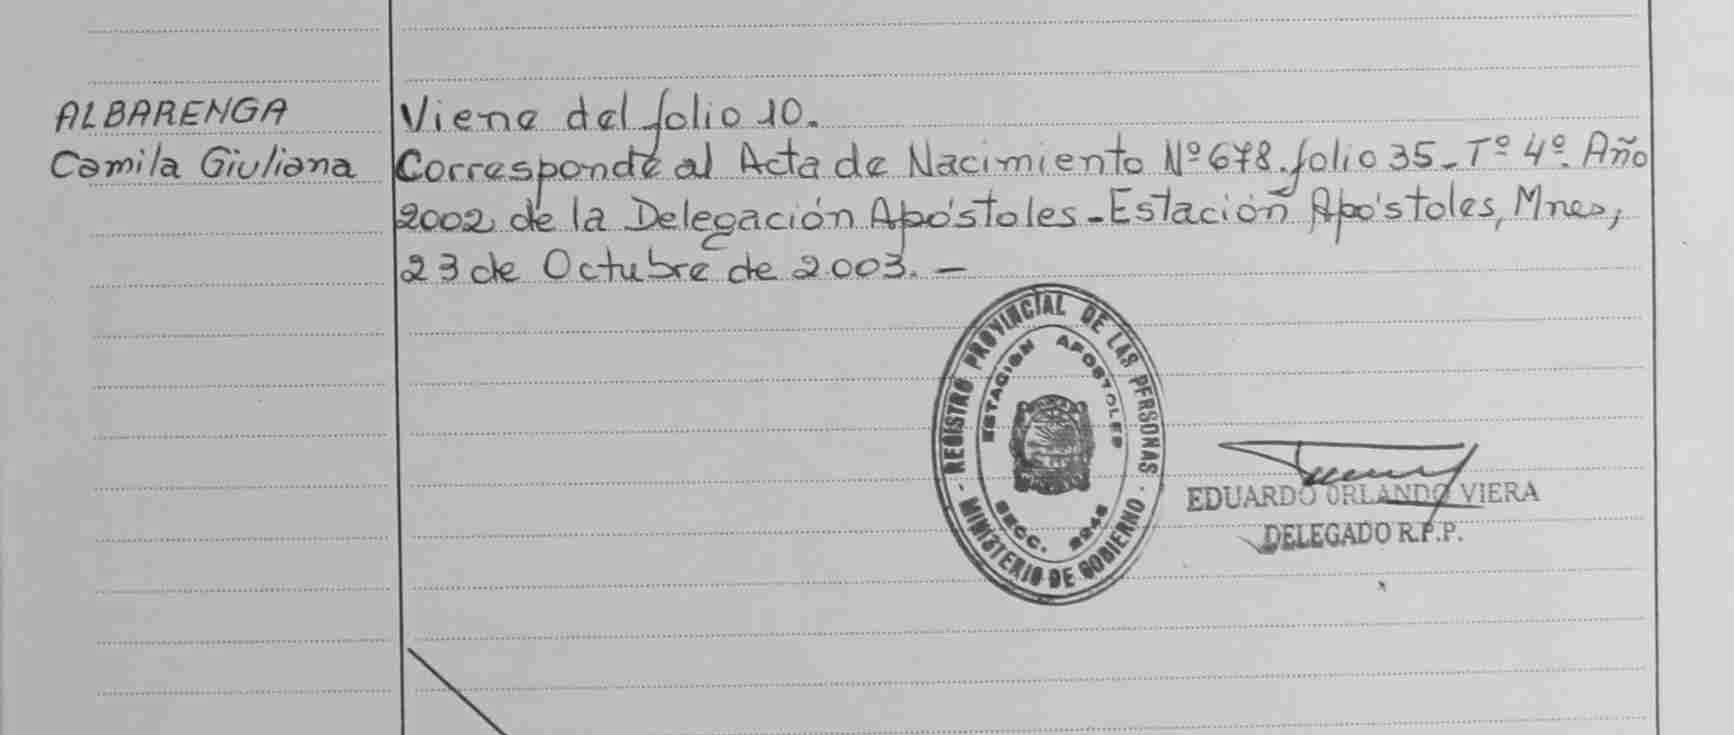 ALBARENGA
Camila Giuliana
Viene del folio 10.
Corresponde al Acta de Nacimiento Nº 678. folio 35 - Tº 4º. Año
2002 de la Delegación Apóstoles - Estación Apóstoles, Mnes,
23 de Octubre de 2003. -
REGISTRO PROVINCIAL DE LAS PERSONAS
- MINISTERIO DE GOBIERNO -
ESTACION APOSTOLES
SECC.
EDUARDO ORLANDO VIERA
DELEGADO R.P.P.